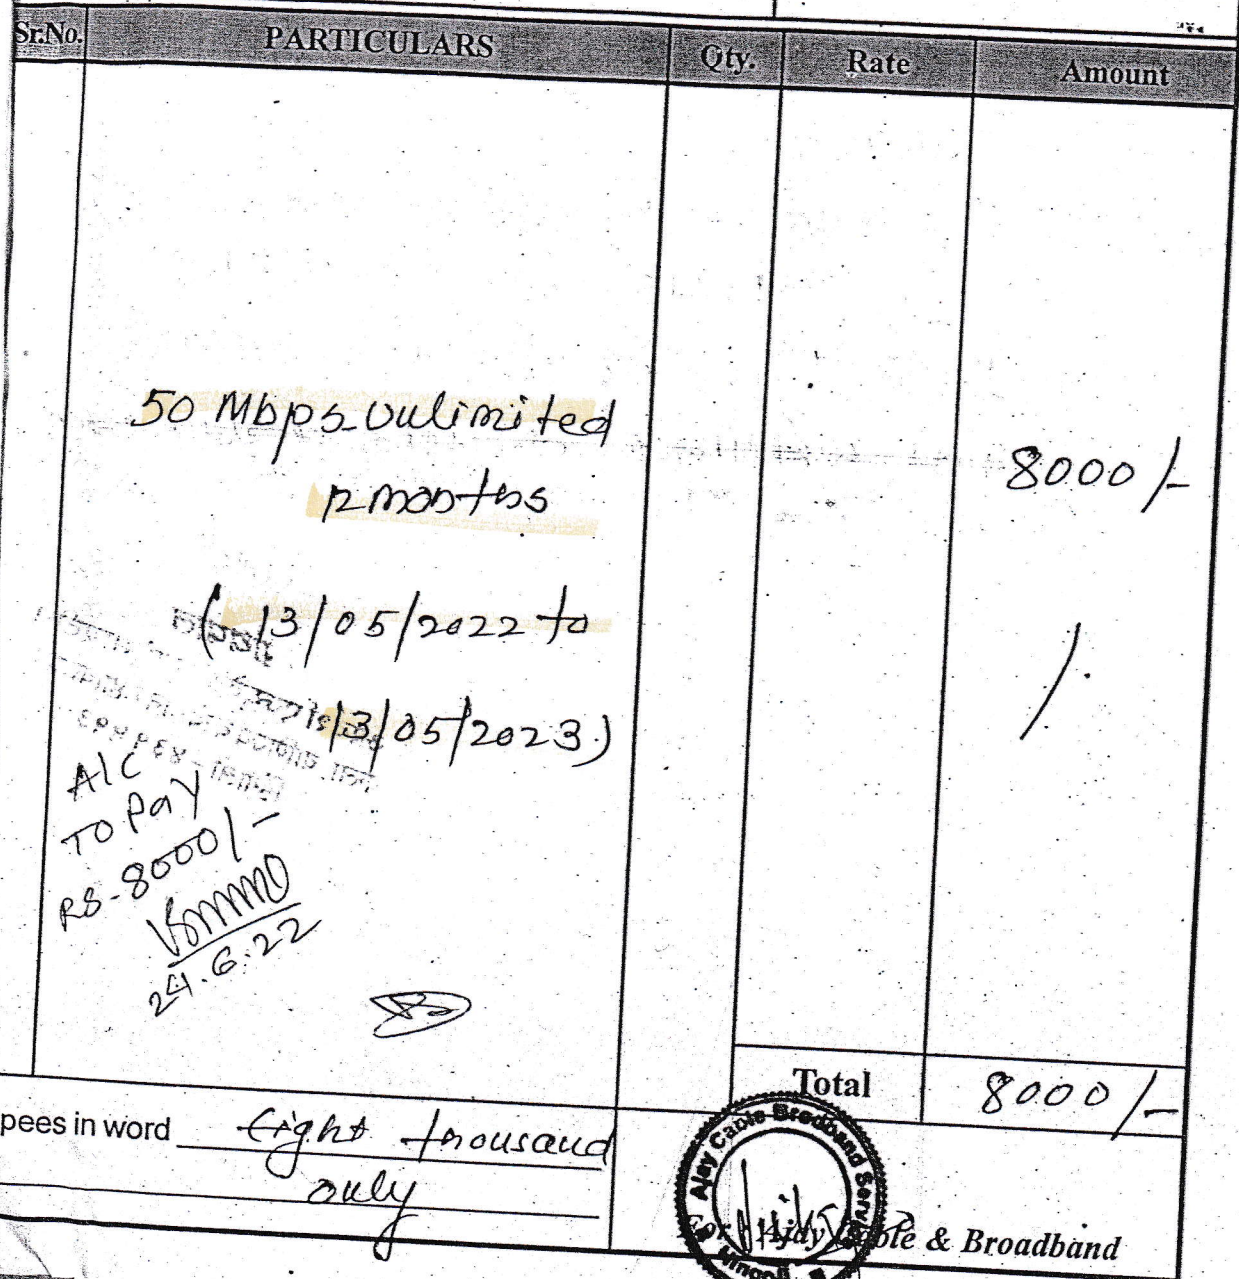 Sr.No. PARTICULARS Qty. Rate Amount
50 Mbps unlimited
12 months
8000/-
(13/05/2022 to
13/05/2023)
A/C
TO Pay
RS-8000/-
24.6.22
Total 8000/-
pees in word Eight thousand
only
Ajay Cable Brodband Serv
For Ajay Cable & Broadband